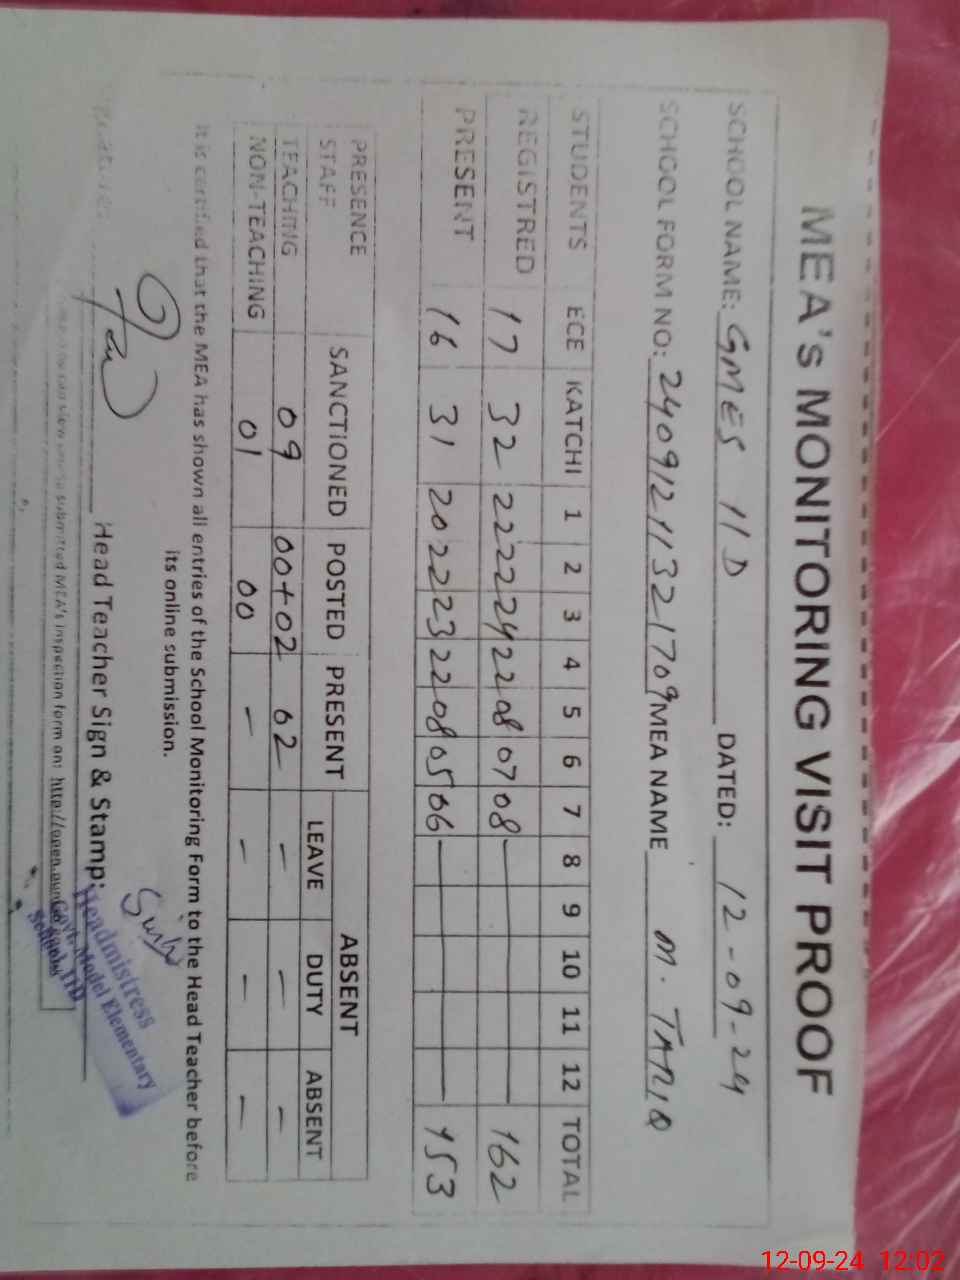 MEA's MONITORING VISIT PROOF
SCHOOL NAME: GMES 11D DATED: 12-09-24
SCHOOL FORM NO: 24091211321709 MEA NAME M. TARIQ
STUDENTS ECE KATCHI 1 2 3 4 5 6 7 8 9 10 11 12 TOTAL
REGISTRED 17 32 22 22 24 22 08 07 08 — 162
PRESENT 16 31 20 22 23 22 08 05 06 — 153
PRESENCE SANCTIONED POSTED PRESENT ABSENT
STAFF LEAVE DUTY ABSENT
TEACHING 09 00+02 02 — — —
NON-TEACHING 01 00 — — — —
It is certified that the MEA has shown all entries of the School Monitoring Form to the Head Teacher before
its online submission.
Head Teacher Sign & Stamp:
Headmistress
Govt. Model Elementary
School 11D
submitted MEA's inspection form on:
12-09-24 12:02